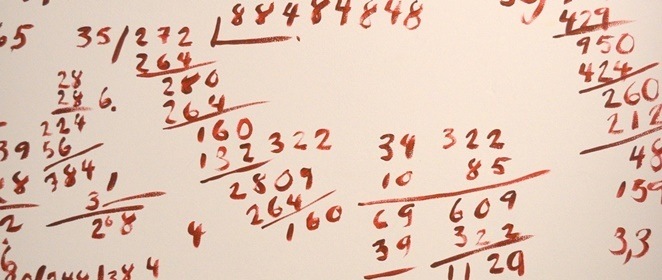 88484848
429
65 35/272
950
264
424
280
28
260
28 6.
264
212
224
160
322
34 322
48
39 56
132
10 85
8 384
2809
159
31
264
69 609
2 268
4
160
39 322
3,3
6
1129